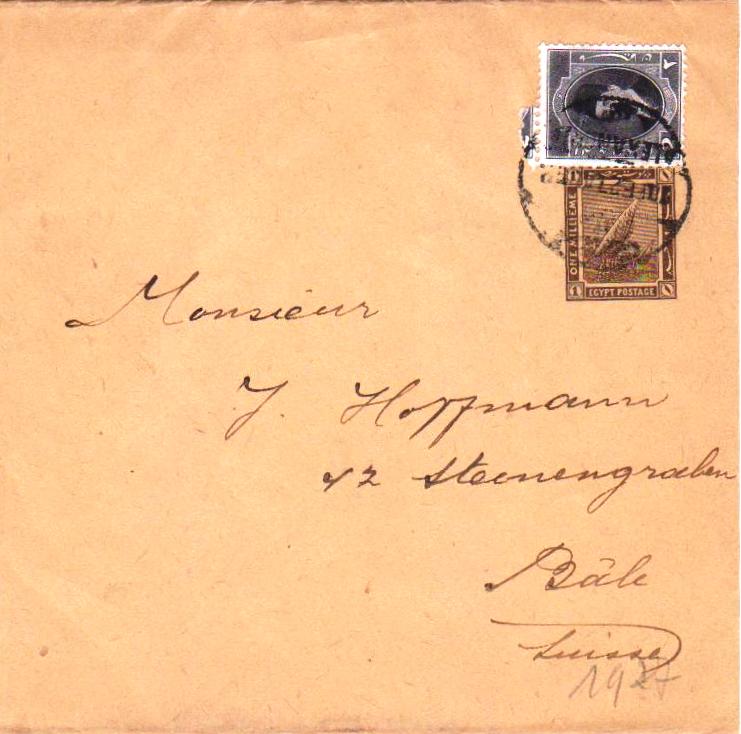 ONE MILLIEME
1
EGYPT POSTAGE
Monsieur
J. Hoffmann
42 Steinengraben
Bâle
Suisse
1927